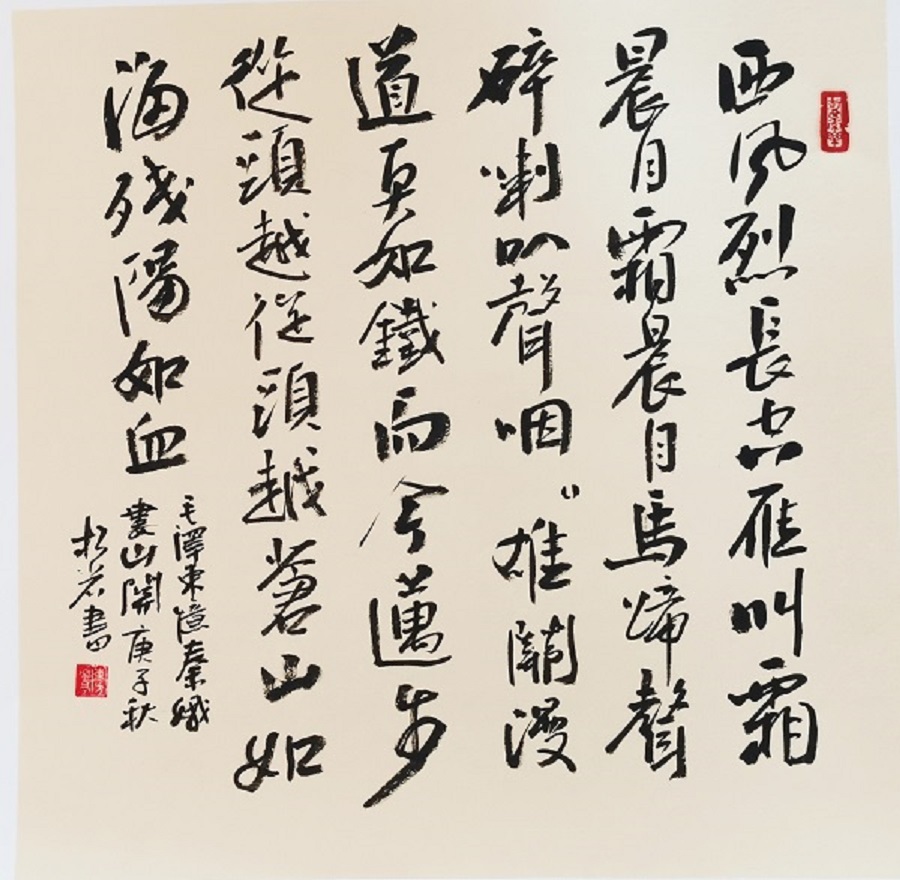 西風烈長空雁叫霜
晨月霜晨月馬蹄聲
碎喇叭聲咽〻雄關漫
道真如鐵而今邁步
從頭越從頭越蒼山如
海残陽如血
毛澤東憶秦娥
婁山關庚子秋
松書